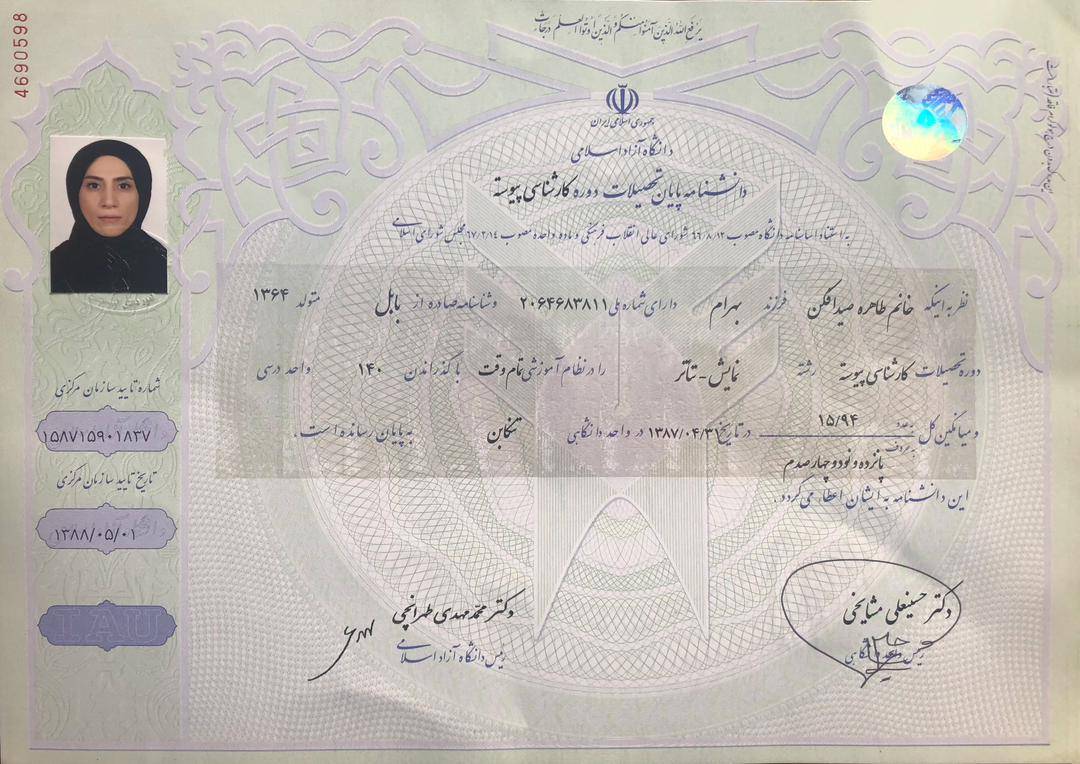 4690598
یرفع الله الذین آمنوا منکم و الذین اوتوا العلم درجات
جمهوری اسلامی ایران
دانشگاه آزاد اسلامی
دانشنامه پایان تحصیلات دوره کارشناسی پیوسته
به استناد اساسنامه دانشگاه مصوب ۶۶/۸/۱۲ شورای عالی انقلاب فرهنگی و ماده واحده مصوب ۶۷/۲/۱۴ مجلس شورای اسلامی
نظر به اینکه خانم طاهره صیدافکن فرزند بهرام دارای شماره ملی ۲۰۶۴۶۸۳۸۱۱ و شناسنامه صادره از بابل متولد ۱۳۶۴
دوره تحصیلات کارشناسی پیوسته رشته نمایش-تئاتر را در نظام آموزشی تمام وقت با گذراندن ۱۴۰ واحد درسی
و میانگین کل به عدد ۱۵/۹۴ در تاریخ ۱۳۸۷/۰۴/۳۱ در واحد دانشگاهی تنکابن به پایان رسانده است.
به حروف پانزده و نود و چهار صدم
این دانشنامه به ایشان اعطا می گردد.
شماره تایید سازمان مرکزی
۱۵۸۷۱۵۹۰۱۸۳۷
تاریخ تایید سازمان مرکزی
۱۳۸۸/۰۵/۰۱
IAU
دکتر حسینعلی مشایخی
رئیس واحد دانشگاهی
دکتر محمد مهدی طهرانچی
رئیس دانشگاه آزاد اسلامی